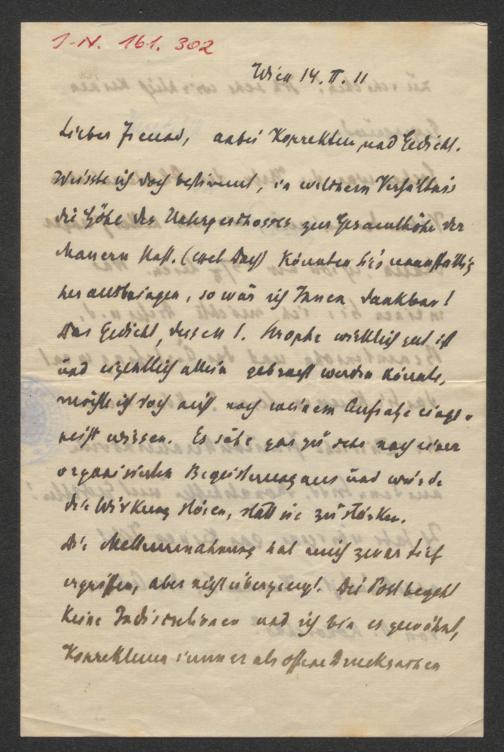 I-N. 161.302
Wien 14. II. 11
Lieber Freund, anbei Korrektur und Gedicht.
Wüsste ich doch bestimmt, in welchem Verhältnis
die Höhe des Untergeschosses zur Gesamthöhe der
Mauern steht. (excl. Dach) Könnten Sie's
herausbringen, so wär ich Ihnen dankbar!
Das Gedicht, dessen 1. Strophe wirklich gut ist
und eigentlich allein gebracht werden könnte,
möchte ich doch nicht nach meinem Aufsatz
wissen. Es sähe gar zu sehr nach einer
organisierten Begeisterung aus und würde
die Wirkung stören, statt sie zu stärken.
Die hat mich zwar tief
ergriffen, aber nicht überzeugt. Die Post begeht
keine Indiscretionen und ich bin es gewöhnt,
Korrekturen immer als offene Drucksachen